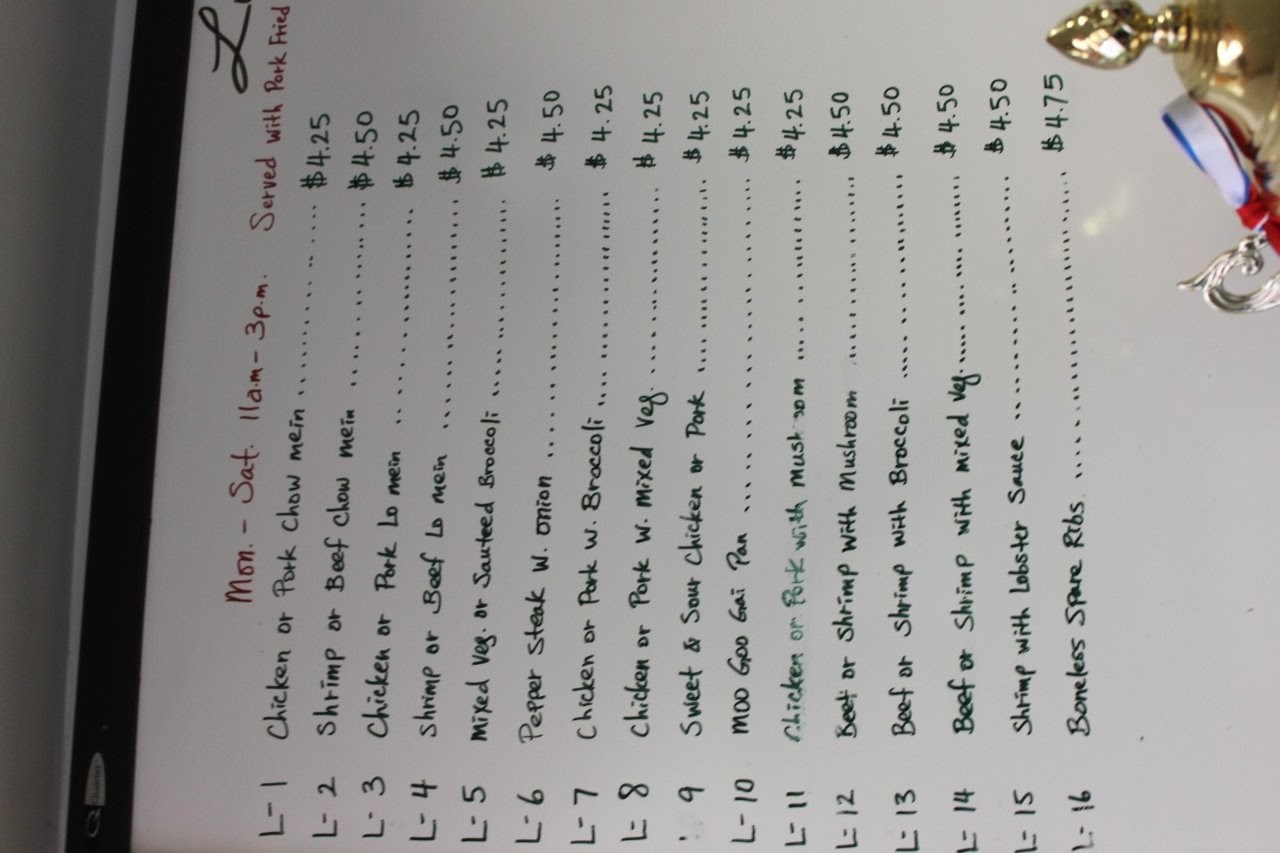 Mon. - Sat. 11a.m - 3p.m. Served with Pork Fried
L-1 Chicken or Pork Chow mein ............ $4.25
L-2 Shrimp or Beef Chow mein ............ $4.50
L-3 Chicken or Pork Lo mein ............ $4.25
L-4 Shrimp or Beef Lo mein ............ $4.50
L-5 Mixed Veg. or Sauteed Broccoli ............ $4.25
L-6 Pepper Steak W. Onion ............ $4.50
L-7 Chicken or Pork W. Broccoli ............ $4.25
L-8 Chicken or Pork W. Mixed Veg. ............ $4.25
9 Sweet & Sour Chicken or Pork ............ $4.25
L-10 Moo Goo Gai Pan ............ $4.25
L-11 Chicken or Pork with mushroom ............ $4.25
L-12 Beef or Shrimp with Mushroom ............ $4.50
L-13 Beef or Shrimp with Broccoli ............ $4.50
L-14 Beef or Shrimp with mixed Veg. ............ $4.50
L-15 Shrimp with Lobster Sauce ............ $4.50
L-16 Boneless Spare Ribs ............ $4.75
Quartet